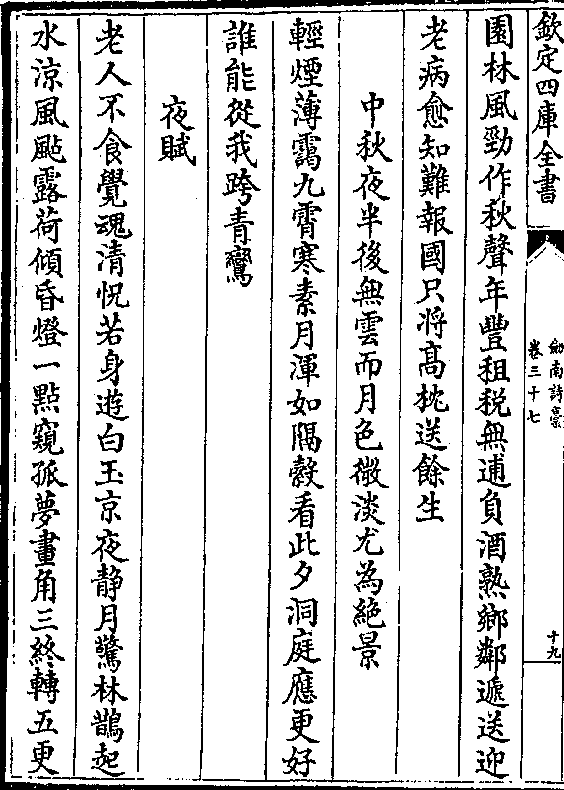 欽定四庫全書
劒南詩稾
卷三十七
十九
園林風勁作秋聲年豐租稅無逋負酒熟鄉鄰遞送迎
老病愈知難報國只將髙枕送餘生
中秋夜半後無雲而月色微淡尤為絶景
輕煙薄靄九霄寒素月渾如隔縠看此夕洞庭應更好
誰能從我跨青鸞
夜賦
老人不食覺魂清怳若身遊白玉京夜靜月驚林鵲起
水涼風颭露荷傾昏燈一點窺孤夢畫角三終轉五更